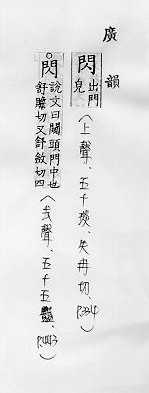 廣韻
閃出門皃(上聲、五十琰、失冉切、P.334)
閃說文曰闚頭門中也舒贍切又舒斂切四(去聲、五十五豔、P.443)